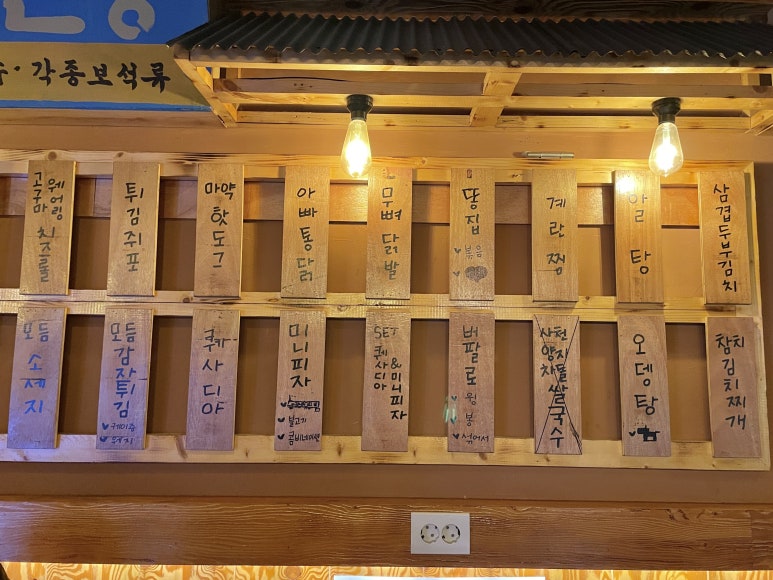 각종보석류
고구마 치즈롤
웨어링
튀김쥐포
마약
핫도그
아빠통닭
무뼈 닭발
똥집
볶음
계란찜
알탕
삼겹두부김치
모듬
소세지
모듬
감자튀김
케이준
웨지
퀘사디야
미니피자
불고기
콤비네이션
SET
퀘사디아
&미니피자
버팔로
윙
봉
섞어서
사천
양지
차돌
쌀국수
오뎅탕
참치
김치찌개